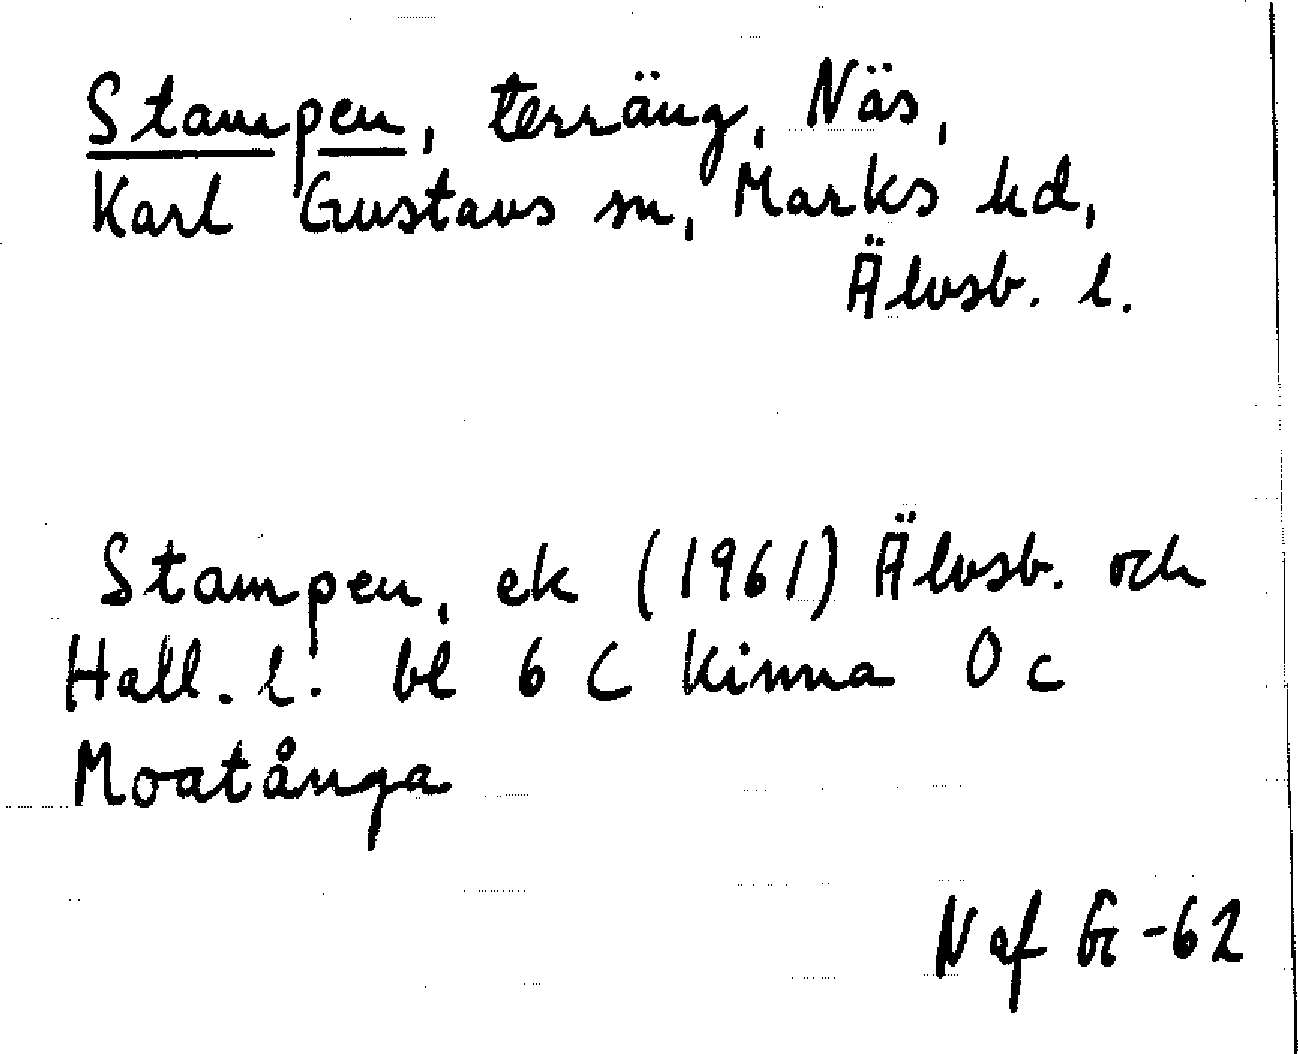 Stampen, terräng, Näs,
Karl Gustavs sn, Marks hd,
Älvsb. l.
Stampen, ek (1961) Älvsb. och
Hall. l. bl 6 C Kinna 0 c
Moatånga
N af G-62